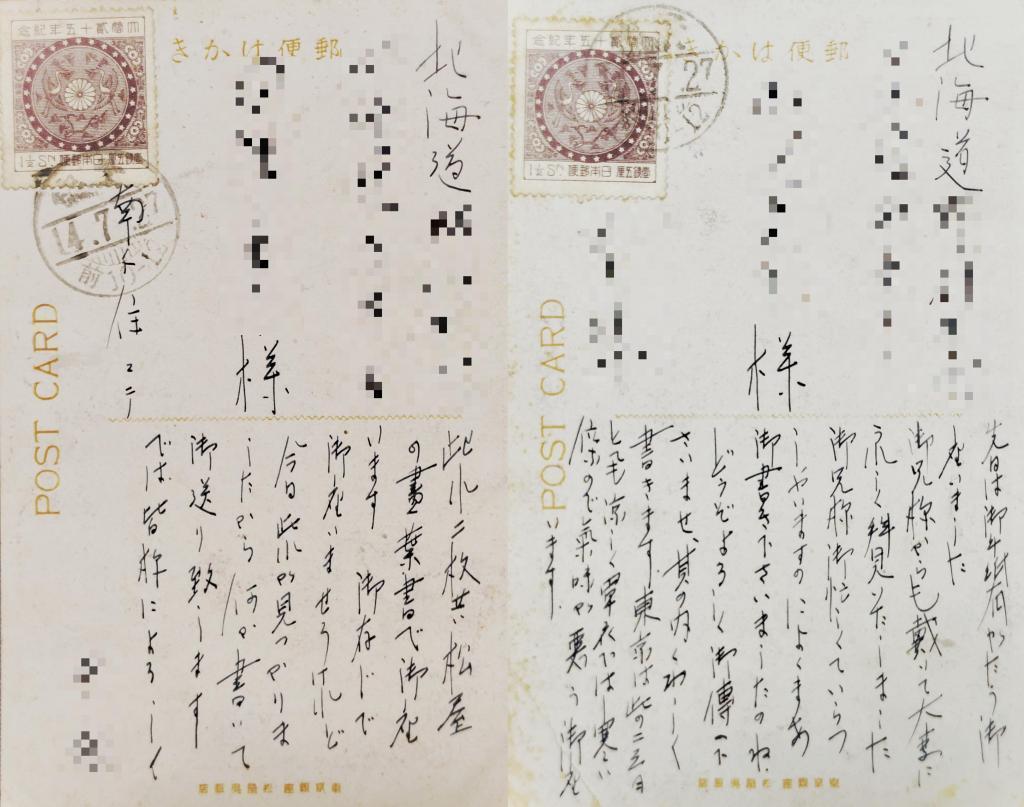 郵便はかき
大婚貳十五年紀念
壹錢五厘 日本郵便 1½ Sn.
14.7.27
前10-12
北海道
様
南千住
POST CARD
此れ二枚共松屋
の畫葉書で御座
います 御存じで
御座いませうけれど
今日此れが見つかりま
したから何か書いて
御送り致します
では皆様によろしく
東京銀座 松屋呉服店
郵便はかき
大婚貳十五年紀念
壹錢五厘 日本郵便 1½ Sn.
7.27
10-12
北海道
様
POST CARD
先日は御手紙有がたう御
座いました
御兄様からも戴いて大事に
うれしく拝見いたしました
御兄様御忙しくていらつ
しやいますのによくまあ
御書き下さいましたのね
どうぞよろしく御傳へ下
さいませ、其の内くわしく
書きます 東京は此の二三日
とても涼しく單衣では寒い
位なので氣味が悪う御座
います。
東京銀座 松屋呉服店